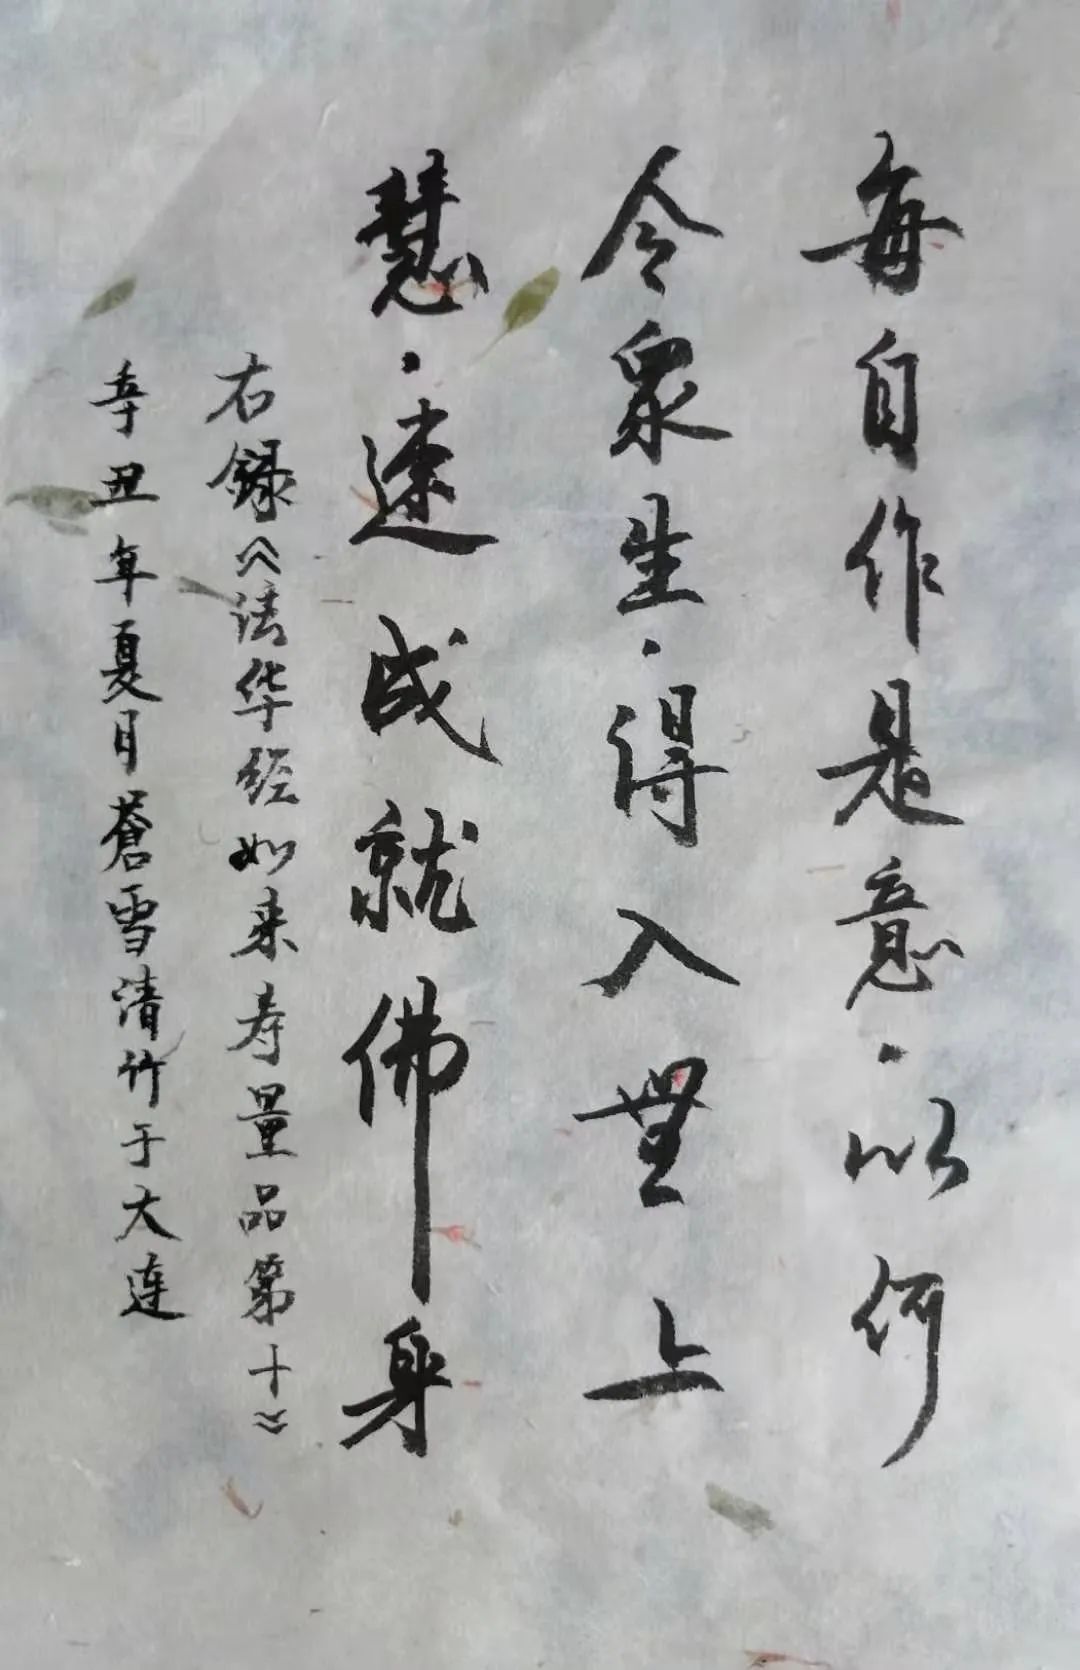 每自作是意·以何
令衆生·得入無上
慧·速成就佛身
右録《法华经如来寿量品第十》
辛丑年夏月蒼雪清竹于大连